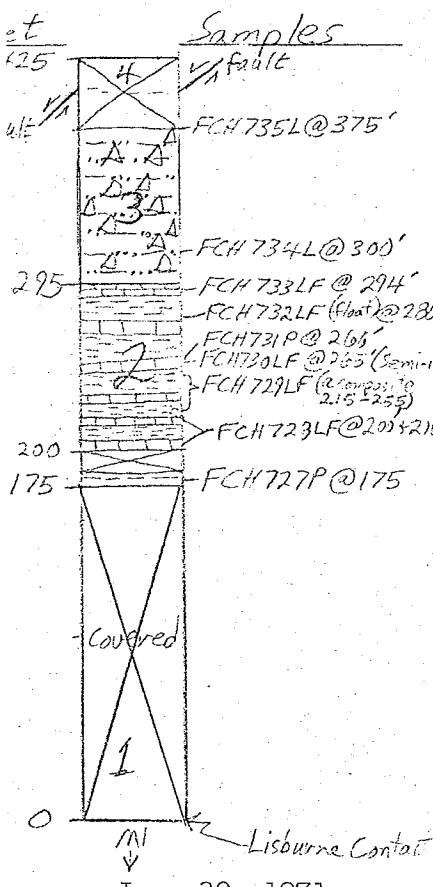 Samples
425
4
fault
FCH735L@375'
3
FCH734L@300'
295
FCH733LF@294'
FCH732LF (float)@28
FCH731P@266'
FCH730LF@265' (Semi-
2
FCH729LF (@composite
215-255)
FCH728LF@200'+21
200
175
FCH727P@175
Covered
1
0
Lisburne Contact